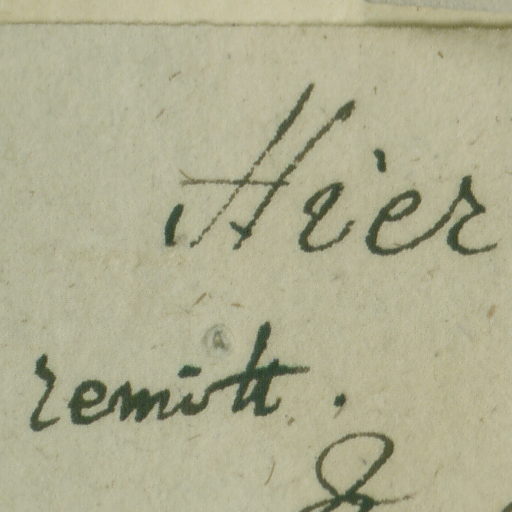 Hier
remitt.